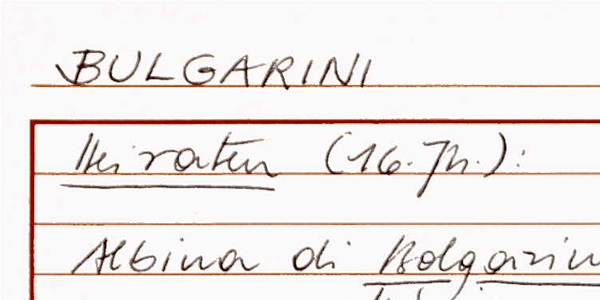 BULGARINI
Heiraten (16. Jh.):
Albina di Bolgarin